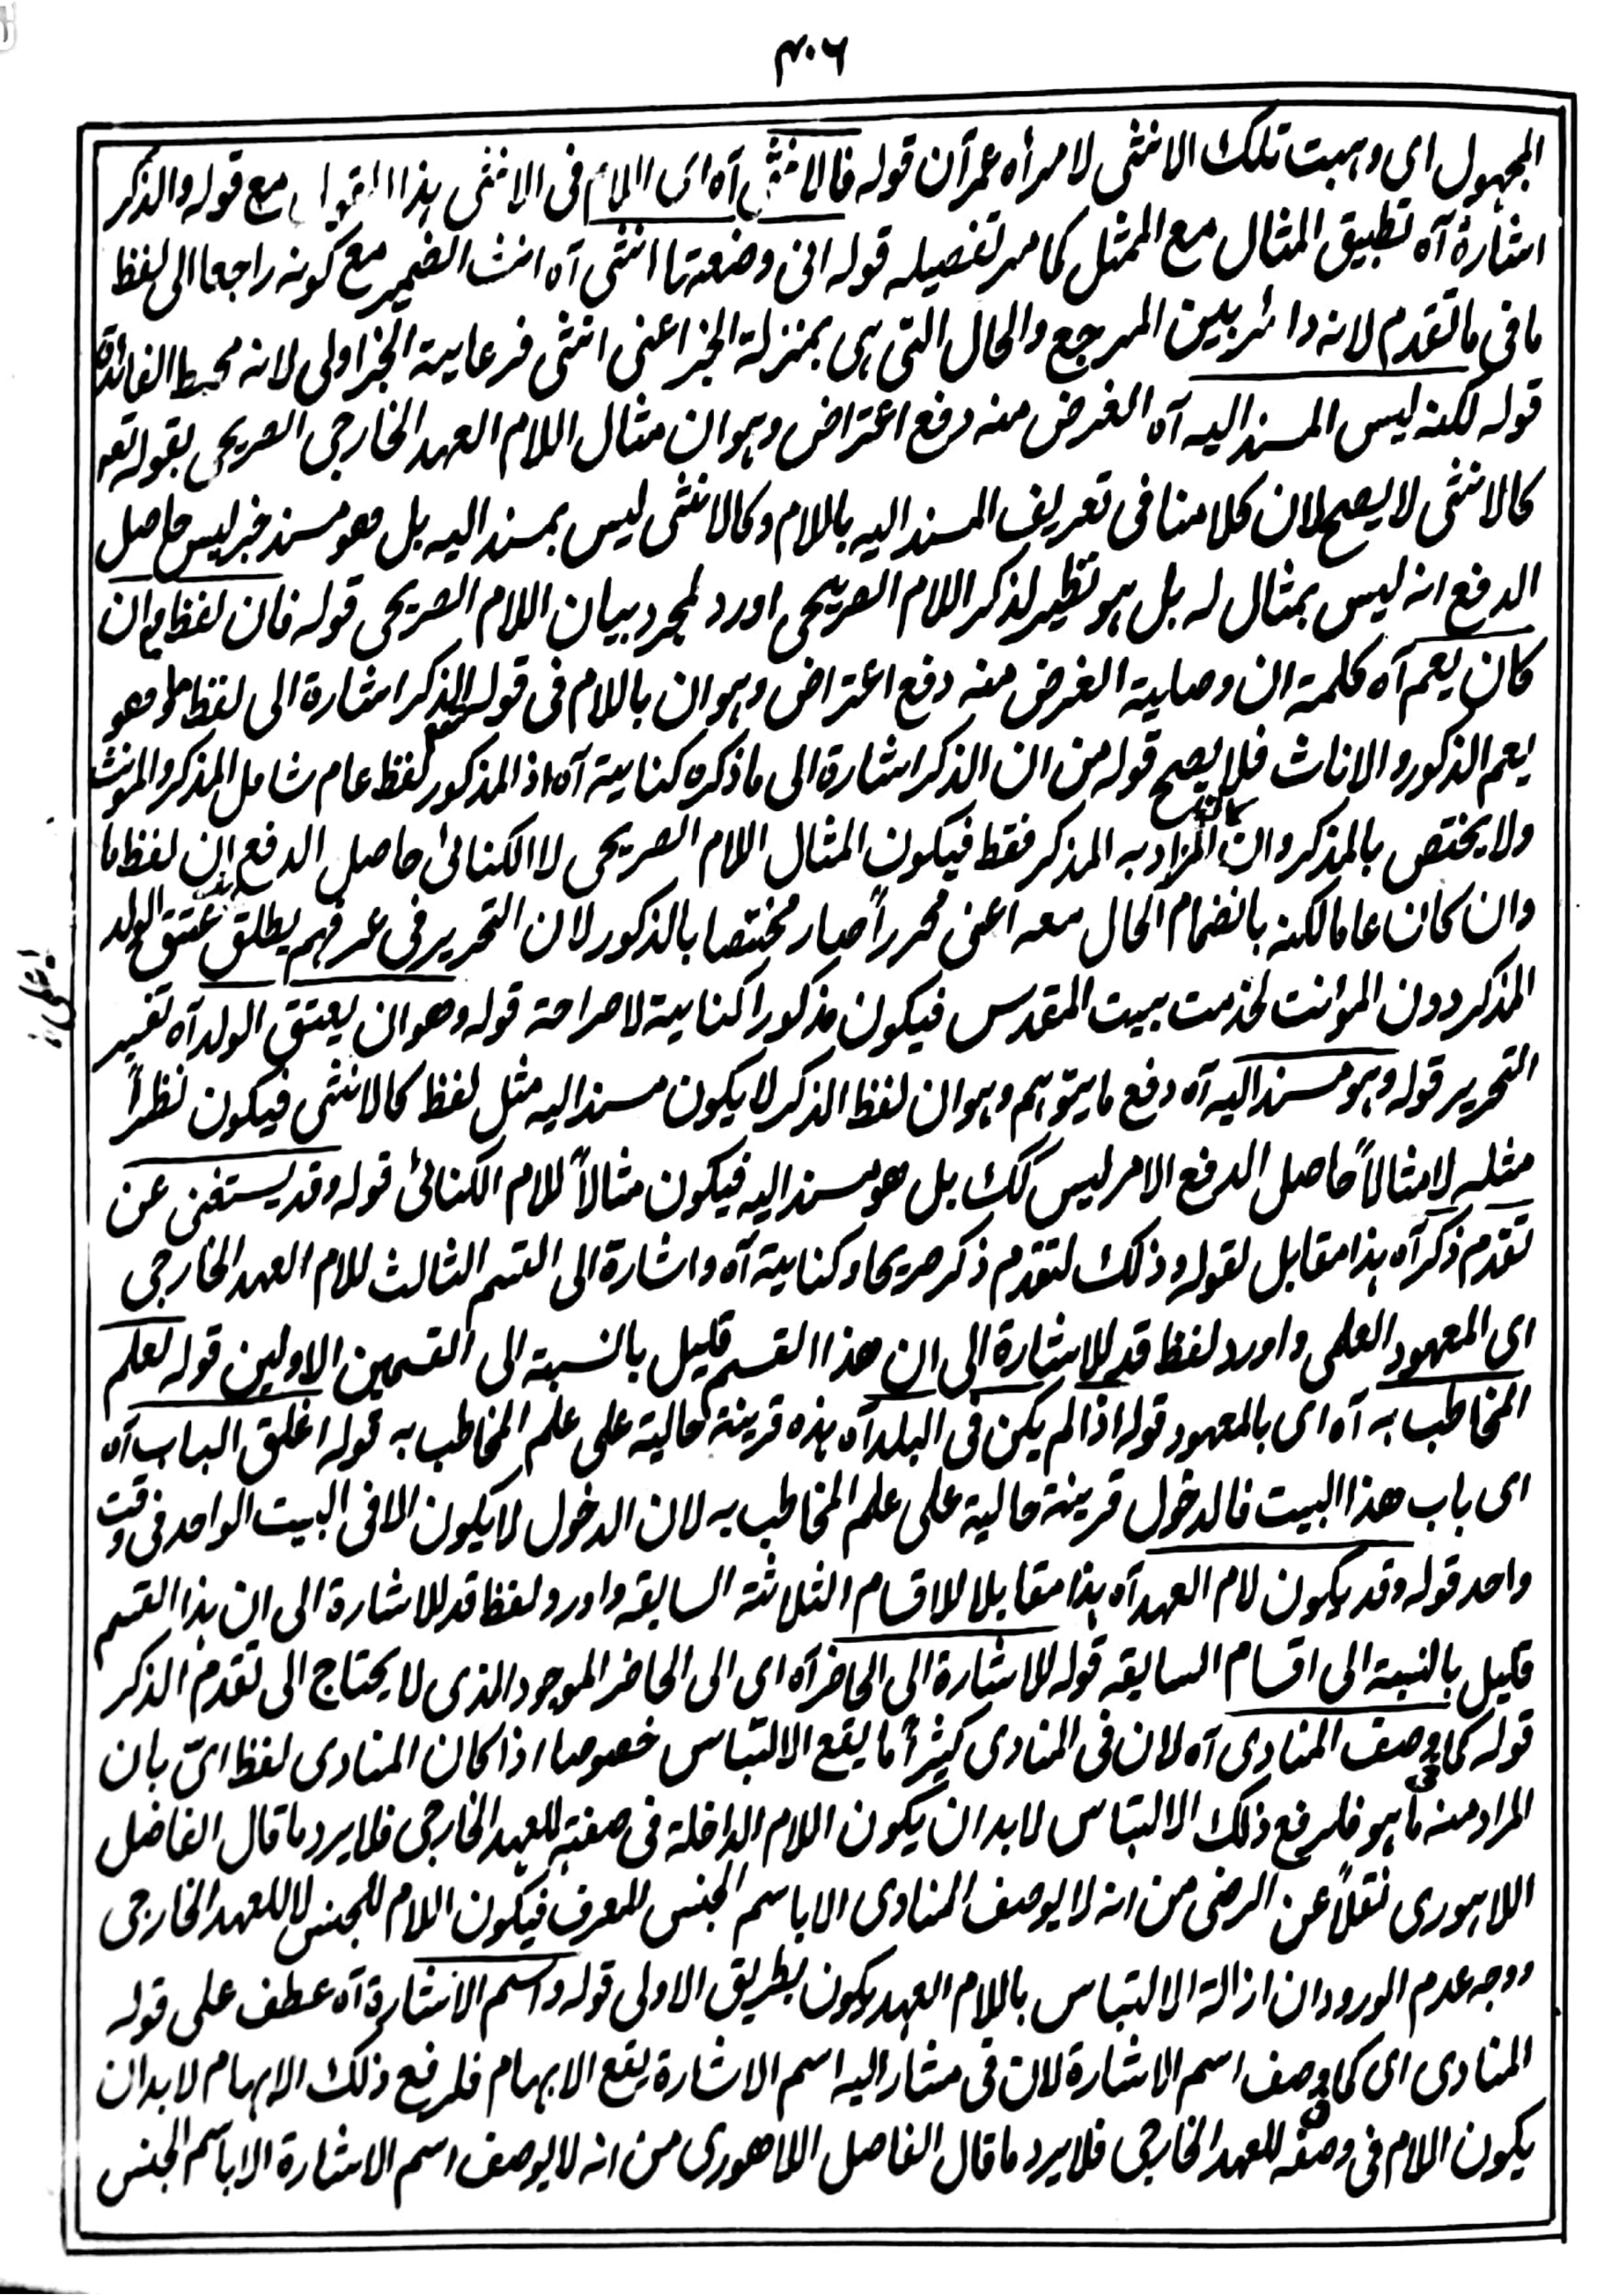 ٣٠٦
المجهول اى وهبت تلك الانثى لامرأه عمرآن قوله فالانثى آه اى اللام فى الانثى هذا مع قوله والذكر
اشارة آه تطبيق المثال مع الممثل كما مر تفصيله قوله انى وضعتها انثى آه انث الضمير مع كونه راجعا الى لفظ
ما فى ما تقدم لانه دائر بين المرجع والحال التى هى بمنزلة الخبر اعنى انثى فرعاية الخبر اولى لانه محيط الفائدة
قوله لكنه ليس المسند اليه آه الغرض منه دفع اعتراض وهو ان مثال اللام العهد الخارجى الصريحى بقوله تعو
كالانثى لا يصح لان كلامنا فى تعريف المسند اليه باللام وكالانثى ليس بمسند اليه بل هو مسند خبر ليس حاصل
الدفع انه ليس بمثال له بل هو نظير لذكر اللام الصريحى اورد لمجرد بيان اللام الصريحى قوله فان لفظ ما وان
كان يعم آه كلمة ان وصلية الغرض منه دفع اعتراض وهو ان باللام فى قوله الذكر اشارة الى لفظ ما وهو
يعم الذكور والاناث فلا يصح قوله من ان الذكر اشارة الى ما ذكره كناية آه اذ المذكور لفظ عام شامل المذكر والمونث
ولا يختص بالمذكر وان المراد به المذكر فقط فيكون المثال اللام الصريحى لا الكنائى حاصل الدفع ان لفظ ما
وان كان عاما لكنه بانضمام الحال معه اعنى محرراً صار مختصا بالذكور لان التحرير فى عرفهم يطلق عتق الولد
المذكر دون المؤنت لخدمت بيت المقدس فيكون مذكورا كناية لا صراحة قوله وهو ان يعتق الولد آه تفسير
التحرير قوله وهو مسند اليه آه دفع ما يتوهم وهو ان لفظ الذكر لا يكون مسند اليه مثل لفظ كالانثى فيكون نظراً
مثله لا مثالاً حاصل الدفع الامر ليس كك بل هو مسند اليه فيكون مثالاً للام الكنائى قوله وقد يستغنى عن
تقدم ذكر آه هذا مقابل لقوله وذلك لتقدم ذكر صريحا وكناية آه واشارة الى القسم الثالث للام العهد الخارجى
اى المعهود العلمى واورد لفظ قد للاشارة الى ان هذا القسم قليل بالنسبة الى القسمين الاولين قوله لعلم
المخاطب به آه اى بالمعهود قوله اذا لم يكن فى البلد آه هذه قرينة حالية على علم المخاطب به قوله اغلق الباب آه
اى باب هذا البيت فالدخول قرينة حالية على علم المخاطب به لان الدخول لا يكون الا فى البيت الواحد فى وقت
واحد قوله وقد يكون لام العهد آه هذا مقابلا للاقسام الثلاثة السابقه واورد لفظ قد للاشارة الى ان هذا القسم
قليل بالنسبة الى اقسام السابقه قوله للاشارة الى الحاضر آه اى الى الحاضر الموجود الذى لا يحتاج الى تقدم الذكر
قوله كما فى وصف المنادى آه لان فى المنادى كثيراً ما يقع الالتباس خصوصا اذا كان المنادى لفظ اىّ بان
المراد منه ما هو فلرفع ذلك الالتباس لا بد ان يكون اللام الداخلة فى صفته للعهد الخارجى فلا يرد ما قال الفاضل
اللاهورى نقلاً عن الرضى من انه لا يوصف المنادى الا باسم الجنس المعرف فيكون اللام للجنس لا للعهد الخارجى
ووجه عدم الورود ان ازالة الالتباس باللام العهد يكون بطريق الاولى قوله واسم الاشارة آه عطف على قوله
المنادى اى كما فى وصف اسم الاشارة لان فى مشار اليه اسم الاشارة يقع الابهام فلرفع ذلك الابهام لا بد ان
يكون اللام فى وصفه للعهد الخارجى فلا يرد ما قال الفاصل اللاهورى من انه لا يوصف اسم الاشارة الا باسم الجنس